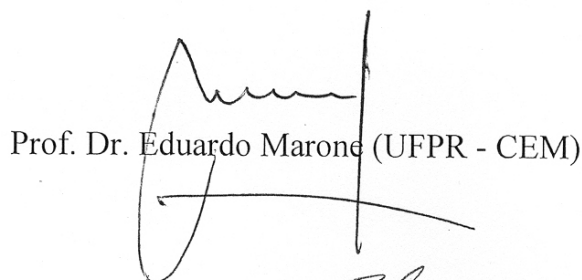 Prof. Dr. Eduardo Marone (UFPR - CEM)